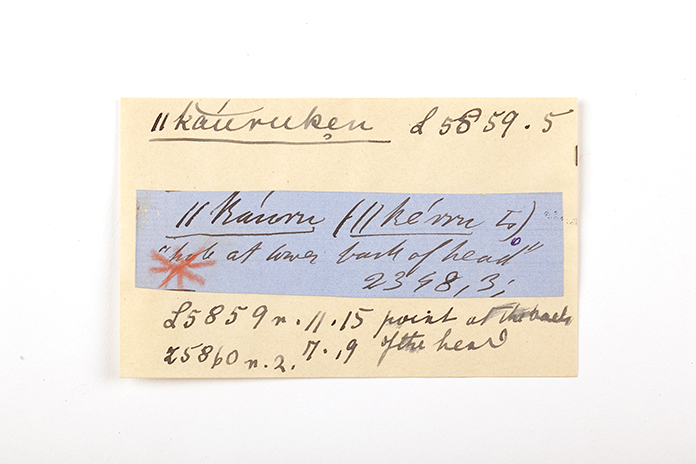 ǁkáuruken L 5859.5
ǁkáuru (ǁké́rru to)
"hole at lower back of head"
2348,3;
L5859 n. 11.15 point at the back
L5860 n. 2. 7. 19 of the head